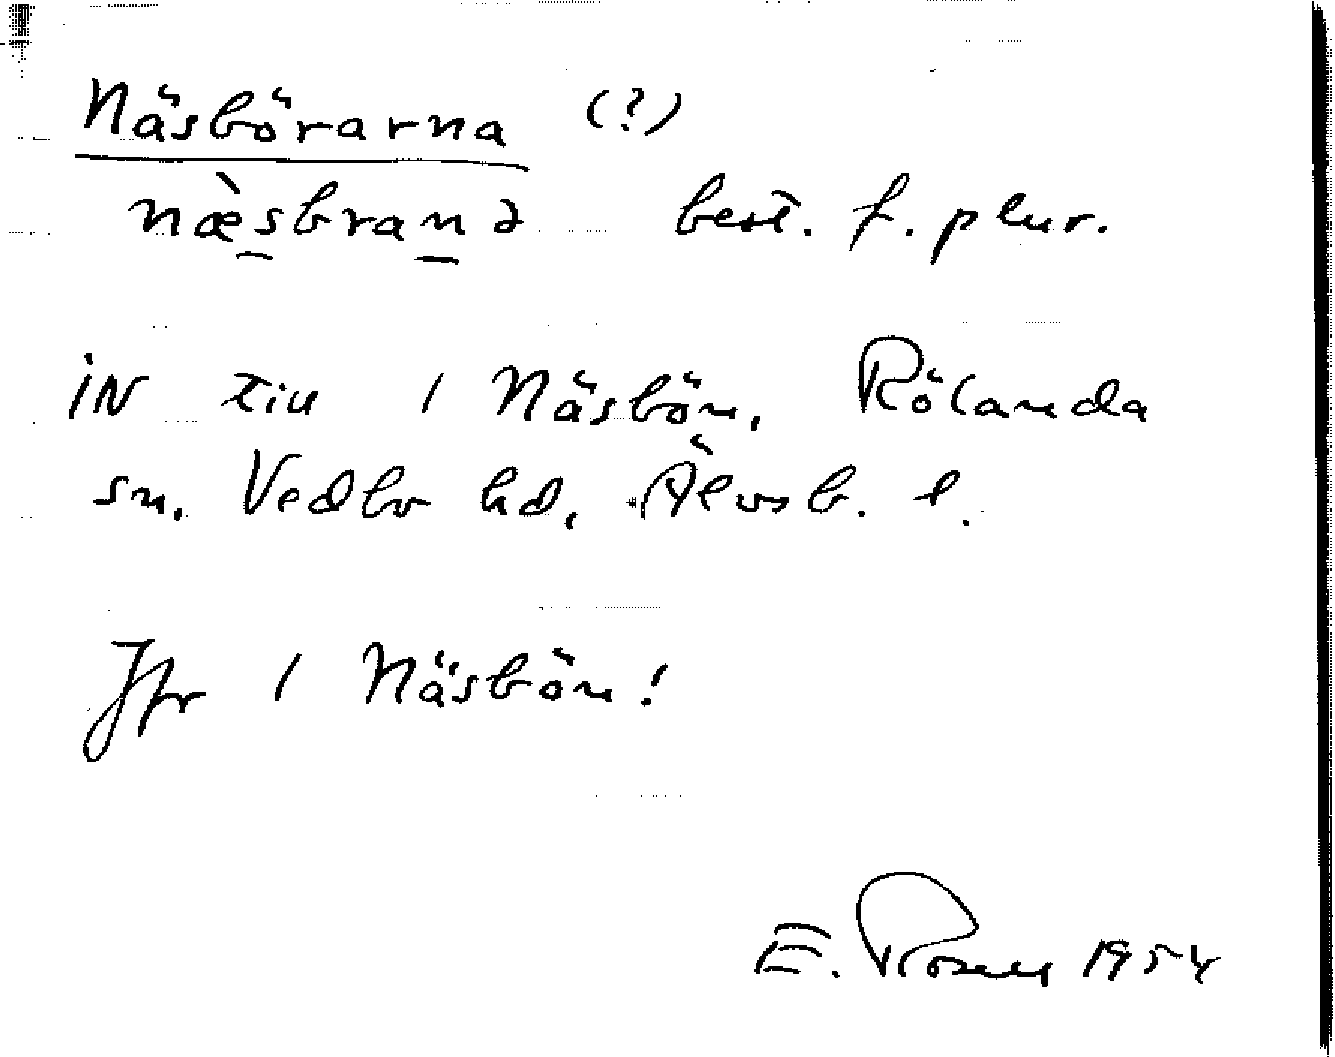 Näsbörarna (?)
næ̀sbranə best. f. plur.
IN till 1 Näsbön, Rölanda
sn, Vedbo hd, Älvsb. l.
Jfr 1 Näsbön!
E. Rosell 1954